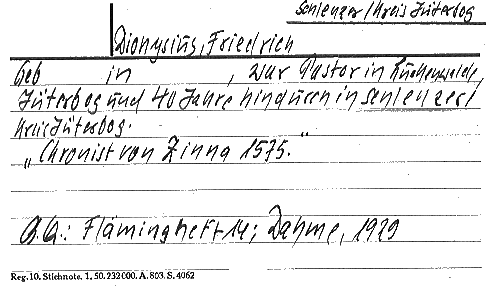 Schlenzer/Kreis Jüterbog
Dionysius, Friedrich
Geb in , war Pastor in Luckenwalde,
Jüterbog und 40 Jahre hindurch in Schlenzer/
Kreis Jüterbog.
„Chronist von Zinna 1575."
A.A.: Flämingheft 14; Dahme, 1929
Reg. 10. Stichnote. 1, 50. 232000. A. 803. S. 4062